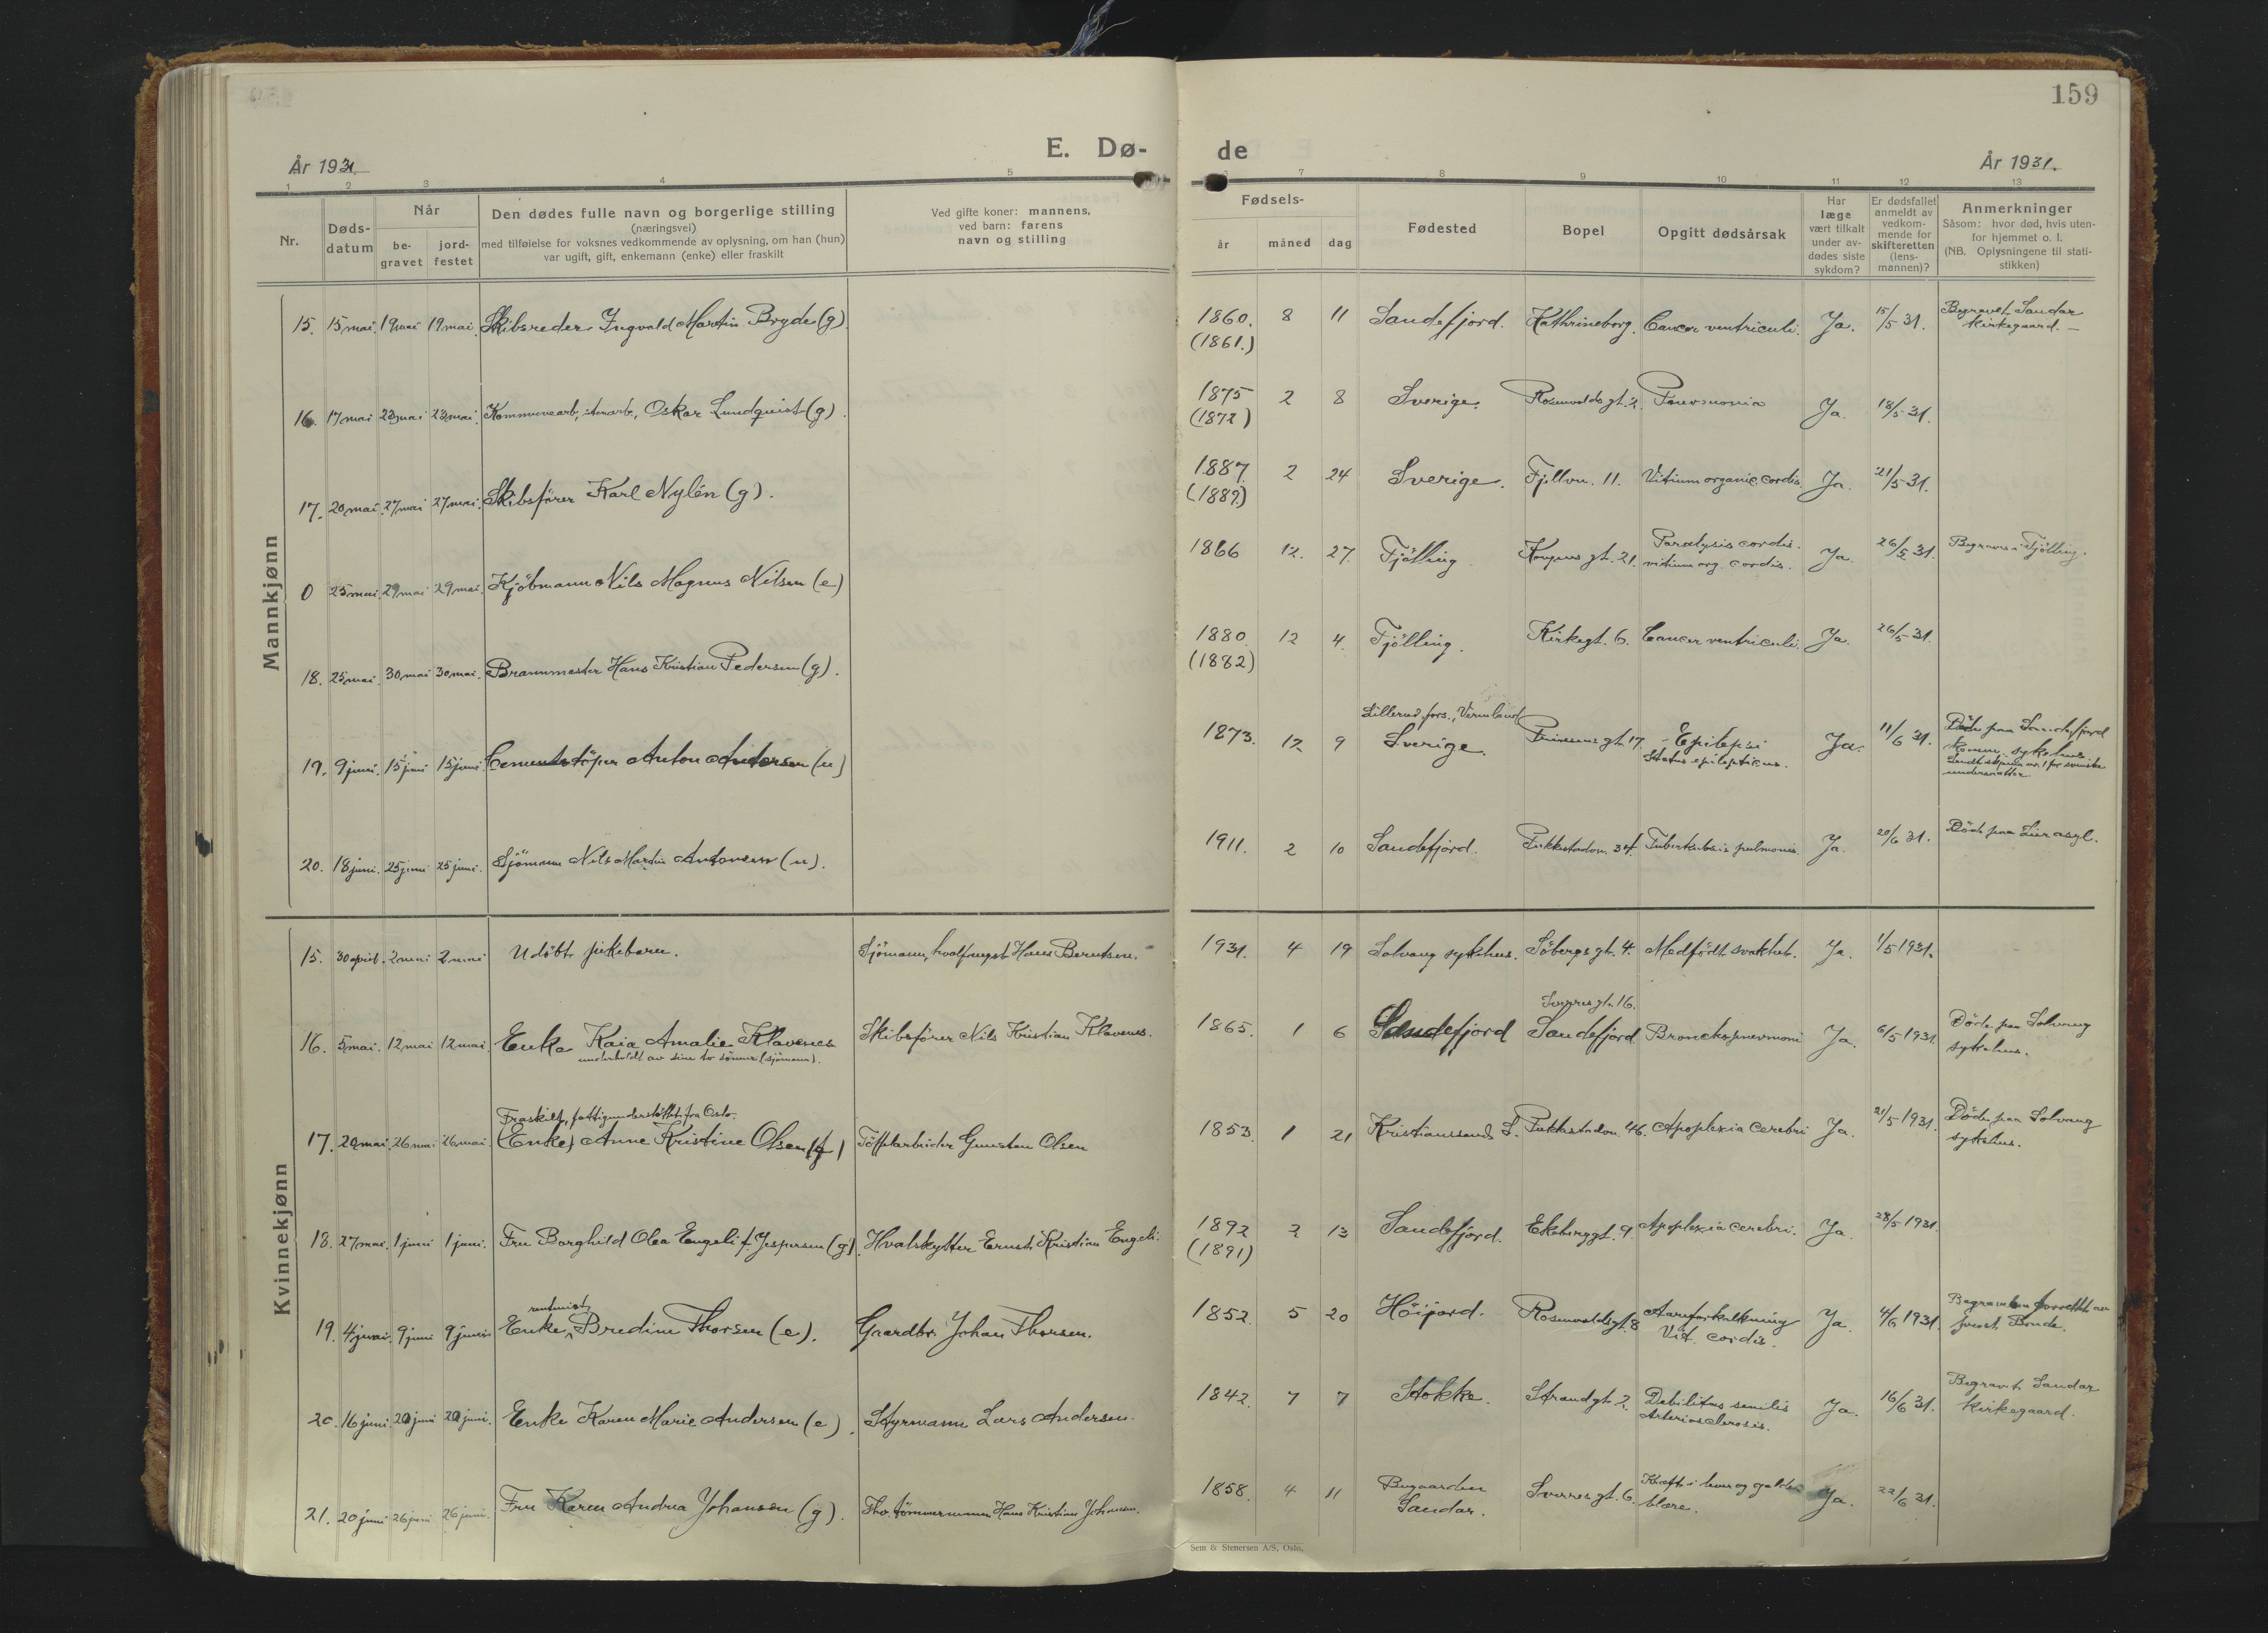 159
E. Dø- de
År 1931.
År 1931.
1 2 3 4 5 6 7 8 9 10 11 12 13
Nr.
Døds-
datum
Når
be-
gravet
jord-
festet
Den dødes fulle navn og borgerlige stilling
(næringsvei)
med tilføielse for voksnes vedkommende av oplysning, om han (hun)
var ugift, gift, enkemann (enke) eller fraskilt
Ved gifte koner: mannens,
ved barn: farens
navn og stilling
Fødsels-
år måned dag
Fødested
Bopel
Opgitt dødsårsak
Har
læge
vært tilkalt
under av-
dødes siste
sykdom?
Er dødsfallet
anmeldt av
vedkom-
mende for
skifteretten
(lens-
mannen)?
Anmerkninger
Såsom: hvor død, hvis uten-
for hjemmet o. l.
(NB. Oplysningene til stati-
stikken)
Mannkjønn
15. 15 mai. 19 mai 19 mai. Skibsreder Ingvald Martin Bryde (g). 1860. 8 11 Sandefjord. Kathrineborg. Cancer ventriculi. Ja. 15/5 31. Begravet Sandar
(1861.) kirkegaard. —
16. 17 mai 23 mai 23 mai. Kommunearb., stenarb., Oskar Lundquist (g). 1875 2 8 Sverige. Rosenvoldsgt. 2. Pneumonia Ja. 18/5 31.
(1872)
17. 20 mai. 27 mai 27 mai. Skibsfører Karl Nylén (g). 1887 2 24 Sverige. Fjellvn. 11. Vitium organic. cordis Ja. 21/5 31.
(1889)
0 25 mai. 29 mai 29 mai. Kjöbmann Nils Magnus Nilsen (e) 1866 12. 27. Fjölling Kongens gt. 21. Paralysis cordis. Ja. 26/5 31. Begraves i Fjölling.
vitium org. cordis.
18. 25 mai. 30 mai 30 mai. Brannmester Hans Kristian Pedersen (g). 1880. 12 4. Fjölling. Kirkegt. 6. Cancer ventriculi. Ja. 26/5 31.
(1882)
19. 9 juni. 15 juni 15 juni. Cementstöper Anton Andersen (u) 1873. 12 9 Lillerud fors., Vermland
Sverige. Prinsens gt. 17. Epilepsi Ja. 11/6 31. Död paa Sandefjord
Status epilepticus. komm. sykehus.
undersaatter.
20. 18 juni. 25 juni 25 juni. Sjömann Nils Martin Antonsen (u). 1911. 2 10 Sandefjord. Pukkstadvn. 34. Tuberkulosis pulmonis. Ja. 20/6 31. Död paa Lier asyl.
Kvinnekjønn
15. 30 april. 2 mai 2 mai Udöbt pikebarn. Sjömann, hvalfangst Hans Berntsen. 1931. 4 19 Solvang sykehus. Söbergs gt. 4. Medfödt svakhet. Ja. 1/5 1931.
16. 5 mai. 12 mai 12 mai. Enke Kaia Amalie Klavenes Skibsfører Nils Kristian Klavenes. 1865. 1 6 Sandefjord Sverres gt. 16.
underholdt av sine to sönner (sjömenn). Sandefjord Bronchopneumoni Ja. 6/5 1931. Död paa Solvang
sykehus.
Fraskilt, fattigunderstöttet fra Oslo.
17. 20 mai. 26 mai 26 mai (Enke) Anne Kristine Olsen (f) Töffelarbeider Gunsten Olsen 1853. 1 21 Kristianssand S. Pukkstadvn. 46. Apoplexia cerebri Ja. 21/5 1931. Död paa Solvang
sykehus.
18. 27 mai. 1 juni 1 juni. Fru Borghild Olea Engeli f. Jespersen (g). Hvalskytter Ernst Kristian Engeli. 1892 2 13 Sandefjord. Ekebergt. 9. Apoplexia cerebri. Ja. 28/5 1931.
(1891)
19. 4 juni. 9 juni 9 juni Enke, rentenist, Bredine Thorsen (e). Gaardbr. Johan Thorsen. 1852. 5 20 Höijord. Rosenvoldsgt. 8 Aareforkalkning Ja. 4/6 1931. Begravelsen forrettet av
Vit. cordis. prest Bonde.
20. 16 juni. 20 juni 20 juni. Enke Karen Marie Andersen (e). Styrmann Lars Andersen. 1842. 7 7 Stokke. Strandgt. 2. Debilitas senilis Ja. 16/6 31. Begravet Sandar
Arteriosclerosis. kirkegaard.
21. 20 juni 26 juni 26 juni. Fru Karen Andrea Johansen (g). Fhv. tömmermann Hans Kristian Johansen. 1858. 4 11 Bugaarden Sverres gt. 6. Kreft i lever og galde- Ja. 22/6 31.
Sandar. blære.
Sem & Stenersen A/S, Oslo.